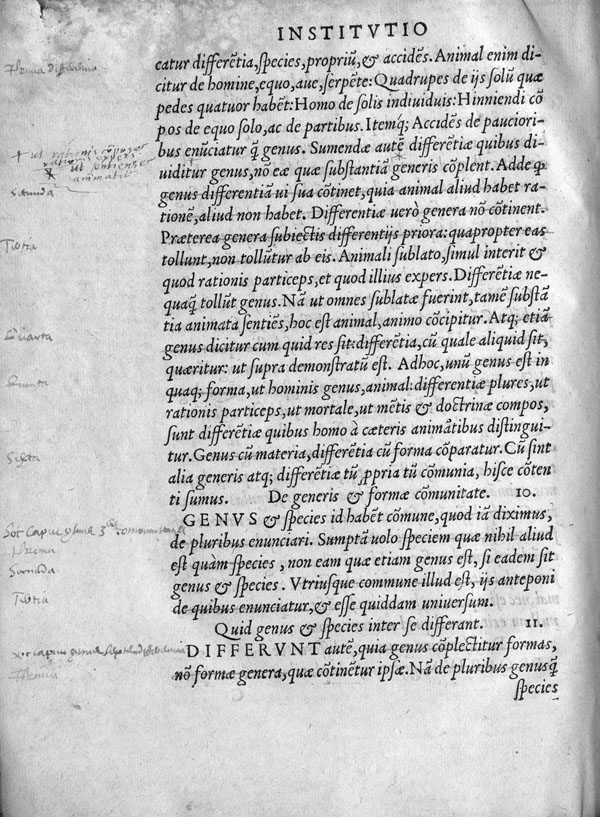 INSTITVTIO
catur differẽtia, species, propriũ, & accidẽs. Animal enim di-
citur de homine, equo, aue, serpẽte: Quadrupes de ijs solũ quæ
pedes quatuor habẽt: Homo de solis indiuiduis: Hinniendi cõ
pos de equo solo, ac de partibus. Itemq; Accidẽs de paucioribus
bus enũciatur q̃ genus. Sumendæ autẽ differẽtiæ quibus di-
uiditur genus, nõ eæ quæ substantiã generis cõplent. Adde ꝙ
genus differentiã ui sua cõtinet, quia animal aliud habet ra-
tionẽ, aliud non habet. Differentiæ uerò genera nõ cõtinent.
Præterea genera subiectis differentijs priora: quapropter eas
tollunt, non tollũtur ab eis. Animali sublato, simul interit &
quod rationis particeps, et quod illius expers. Differẽtiæ ne-
quaq̃ tollũt genus. Nã ut omnes sublatæ fuerint, tamẽ substã
tia animata sentiẽs, hoc est animal, animo cõcipitur. Atq; etiã
genus dicitur cum quid res sit: differẽtia, cũ quale aliquid sit,
quæritur: ut supra demonstratũ est. Adhoc, unũ genus est in
quaq; forma, ut hominis genus, animal: differẽtiæ plures, ut
rationis particeps, ut mortale, ut mẽtis & doctrinæ compos,
sunt differẽtiæ quibus homo à cæteris animãtibus distingui-
tur. Genus cũ materia, differẽtia cũ forma cõparatur. Cũ sint
alia generis atq; differẽtiæ tũ ꝓpria tũ cõmunia, hisce cõten
ti sumus. De generis & formæ cõmunitate. 10.
GENVS & species id habẽt cõmune, quod iã diximus,
de pluribus enunciari. Sumptã uolo speciem quæ nihil aliud
est quàm species, non eam quæ etiam genus est, si eadem sit
genus & species. Vtriusque commune illud est, ijs anteponi
de quibus enunciatur, & esse quiddam uniuersum.
Quid genus & species inter se differant. 11.
DIFFERVNT autẽ, quia genus cõplectitur formas,
nõ formæ genera, quæ cõtinẽtur ipsæ. Nã de pluribus genus q̃
species
+ ut rationis cõpos
rationis expers
ut sentiens
animatũ
Secunda
Tertia
Quarta
Quinta
Sexta
Prima
Secunda
Tertia
Prima